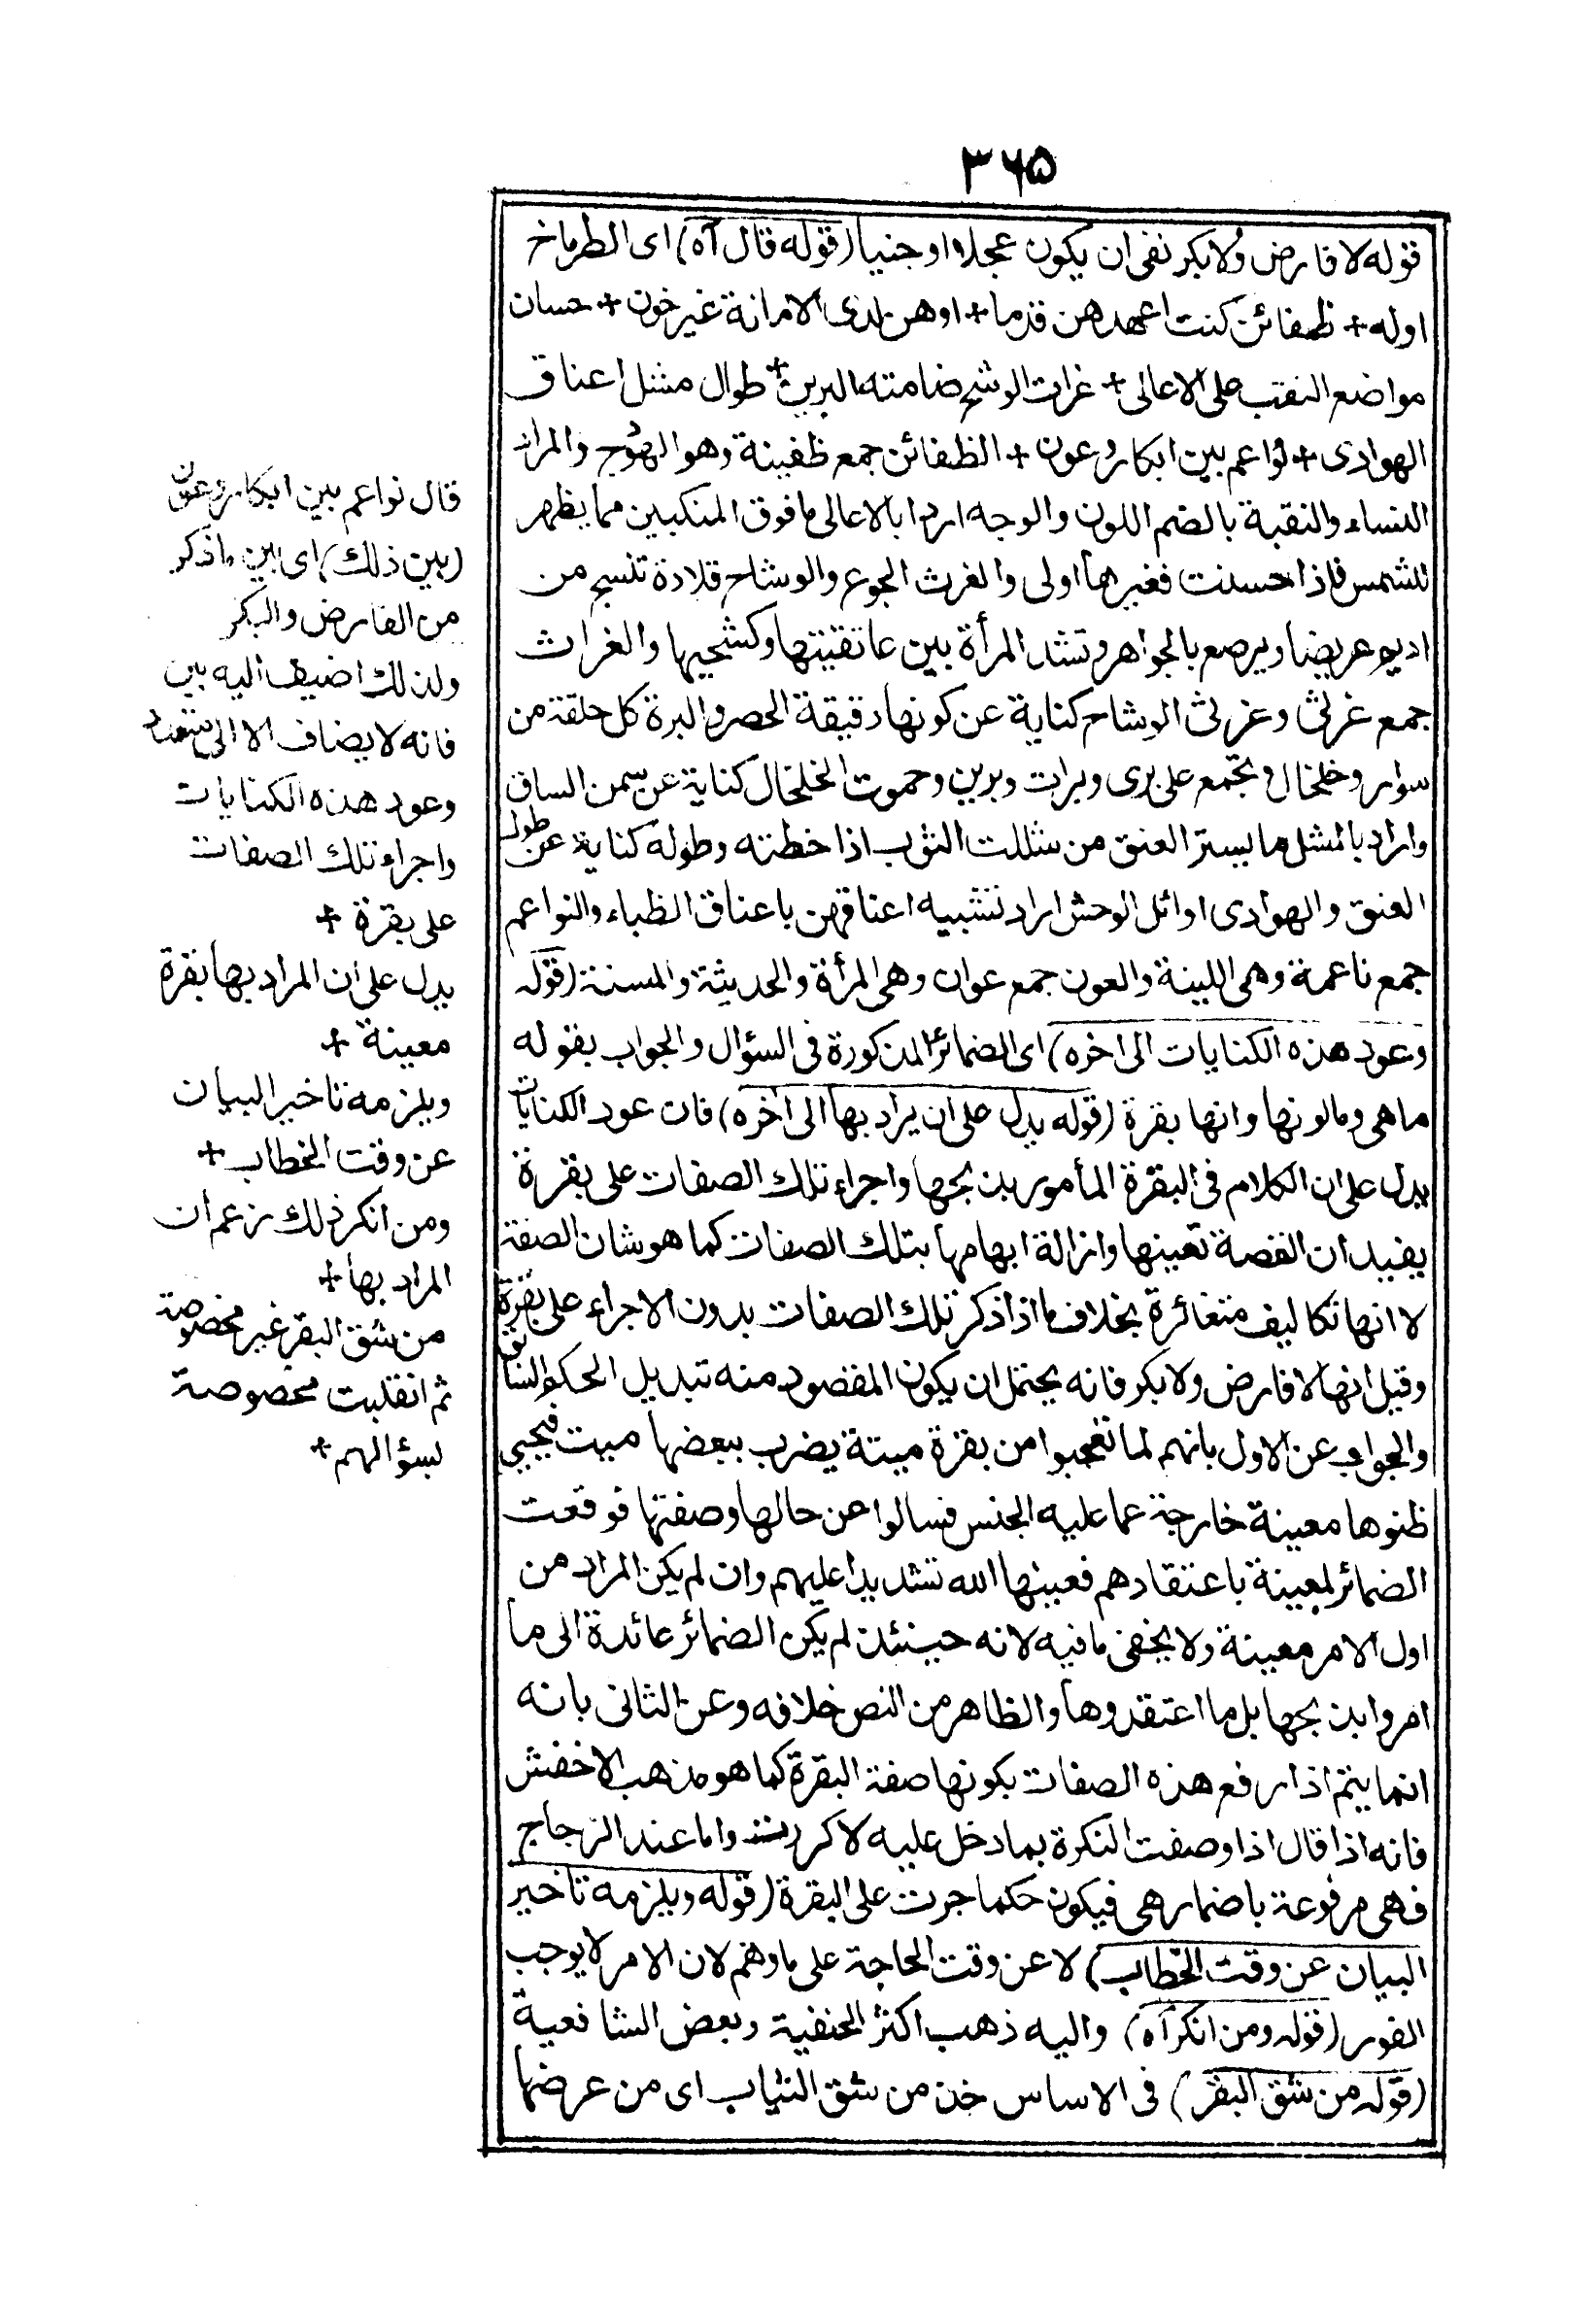 ٣٦٥
قوله لا فارض ولا بكر نفى ان يكون عجلا او جنيا (قوله قال آه) اى الطرماخ
اوله + ظعائن كنت اعهدهن قدما + اوهن لدى الامانة غير خون + حسان
مواضع النقب على الاعالى + غرات الوشح ضامتة البرين + طوال مشل اعناق
الهوادى + نواعم بين ابكار وعون + الظعائن جمع ظعينة وهو الهودج والمراد
النساء والنقبة بالضم اللون والوجه اراد بالاعالى ما فوق المنكبين مما يظهر
للشمس فاذا حسنت فغيرها اولى والغرث الجوع والوشاح قلادة تنسج من
اديم عريضا ويرصع بالجواهر وتشد المرأة بين عاتقيتها وكشحيها والغراث
جمع غرثى وغرثى الوشاح كناية عن كونها دقيقة الخصر والبرة كل حلقة من
سوار وخلخال وتجمع على برى وبرات وبرين وحموت الخلخال كناية عن سمن الساق
واراد بالمشل ما يستر العنق من شللت الثوب اذا خطته وطوله كناية عن طول
العنق والهوادى اوائل الوحش اراد تشبيه اعناقهن باعناق الظباء والنواعم
جمع ناعمة وهى اللينة والعون جمع عوان وهى المرأة والحديثة والمسنة (قوله
وعود هذه الكنايات الى اخره) اى الضمائر المذكورة فى السؤال والجواب بقوله
ماهى ومالونها وانها بقرة (قوله يدل على ان يراد بها الى اخره) فان عود الكنايات
يدل على ان الكلام فى البقرة المأمور بذبحها واجراء تلك الصفات على بقرة
يفيد ان القصة تعينها وازالة ابهامها بتلك الصفات كما هو شان الصفة
لا انها تكاليف متغائرة بخلاف ما اذا ذكر تلك الصفات بدون الاجراء على بقرة
وقيل انها لا فارض ولا بكر فانه يحتمل ان يكون المقصود منه تبديل الحكم السابق
والجواب عن الاول بانهم لما تعجبوا من بقرة ميتة يضرب ببعضها ميت فيحيى
ظنوها معينة خارجة عما عليه الجنس فسالوا عن حالها وصفتها فوقعت
الضمائر لمعينة باعتقادهم فعينها الله تشديدا عليهم وان لم يكن المراد من
اول الامر معينة ولا يخفى ما فيه لانه حينئذ لم يكن الضمائر عائدة الى ما
امروا بذبحها بل ما اعتقدوها والظاهر من النص خلافه وعن الثانى بانه
انما يتم اذا رفع هذه الصفات بكونها صفة البقرة كما هو مذهب الاخفش
فانه اذا قال اذا وصفت النكرة بما دخل عليه لا كررت واما عند الزجاج
فهى مرفوعة باضمار هى فيكون حكما جرت على البقرة (قوله ويلزمه تاخير
البيان عن وقت الخطاب) لا عن وقت الحاجة على ما وهم لان الامر لا يوجب
الفور (قوله ومن انكر آه) واليه ذهب اكثر الحنفية وبعض الشافعية
(قوله من شق البقر) فى الاساس خذ من شق الثياب اى من عرضها
قال نواعم بين ابكار وعون
(بين ذلك) اى بين ما ذكر
من الفارض والبكر
ولذلك اضيف اليه بين
فانه لا يضاف الا الى متعدد
وعود هذه الكنايات
واجراء تلك الصفات
على بقرة +
يدل على ان المراد بها بقرة
معينة +
ويلزمه تاخير البيان
عن وقت الخطاب +
ومن انكر ذلك زعم ان
المراد بها +
من شق البقر غير مخصوصة
ثم انقلبت مخصوصة
بسؤالهم +